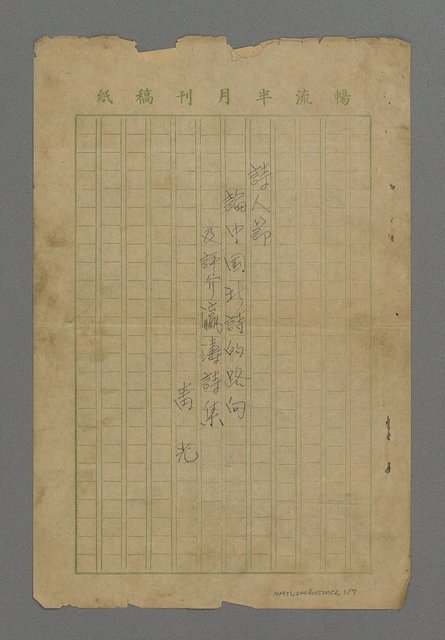 暢流半月刊稿紙
詩人節
論中国新詩的路向
及評介瀛濤詩集
青光
NMTL20080150052 1/7